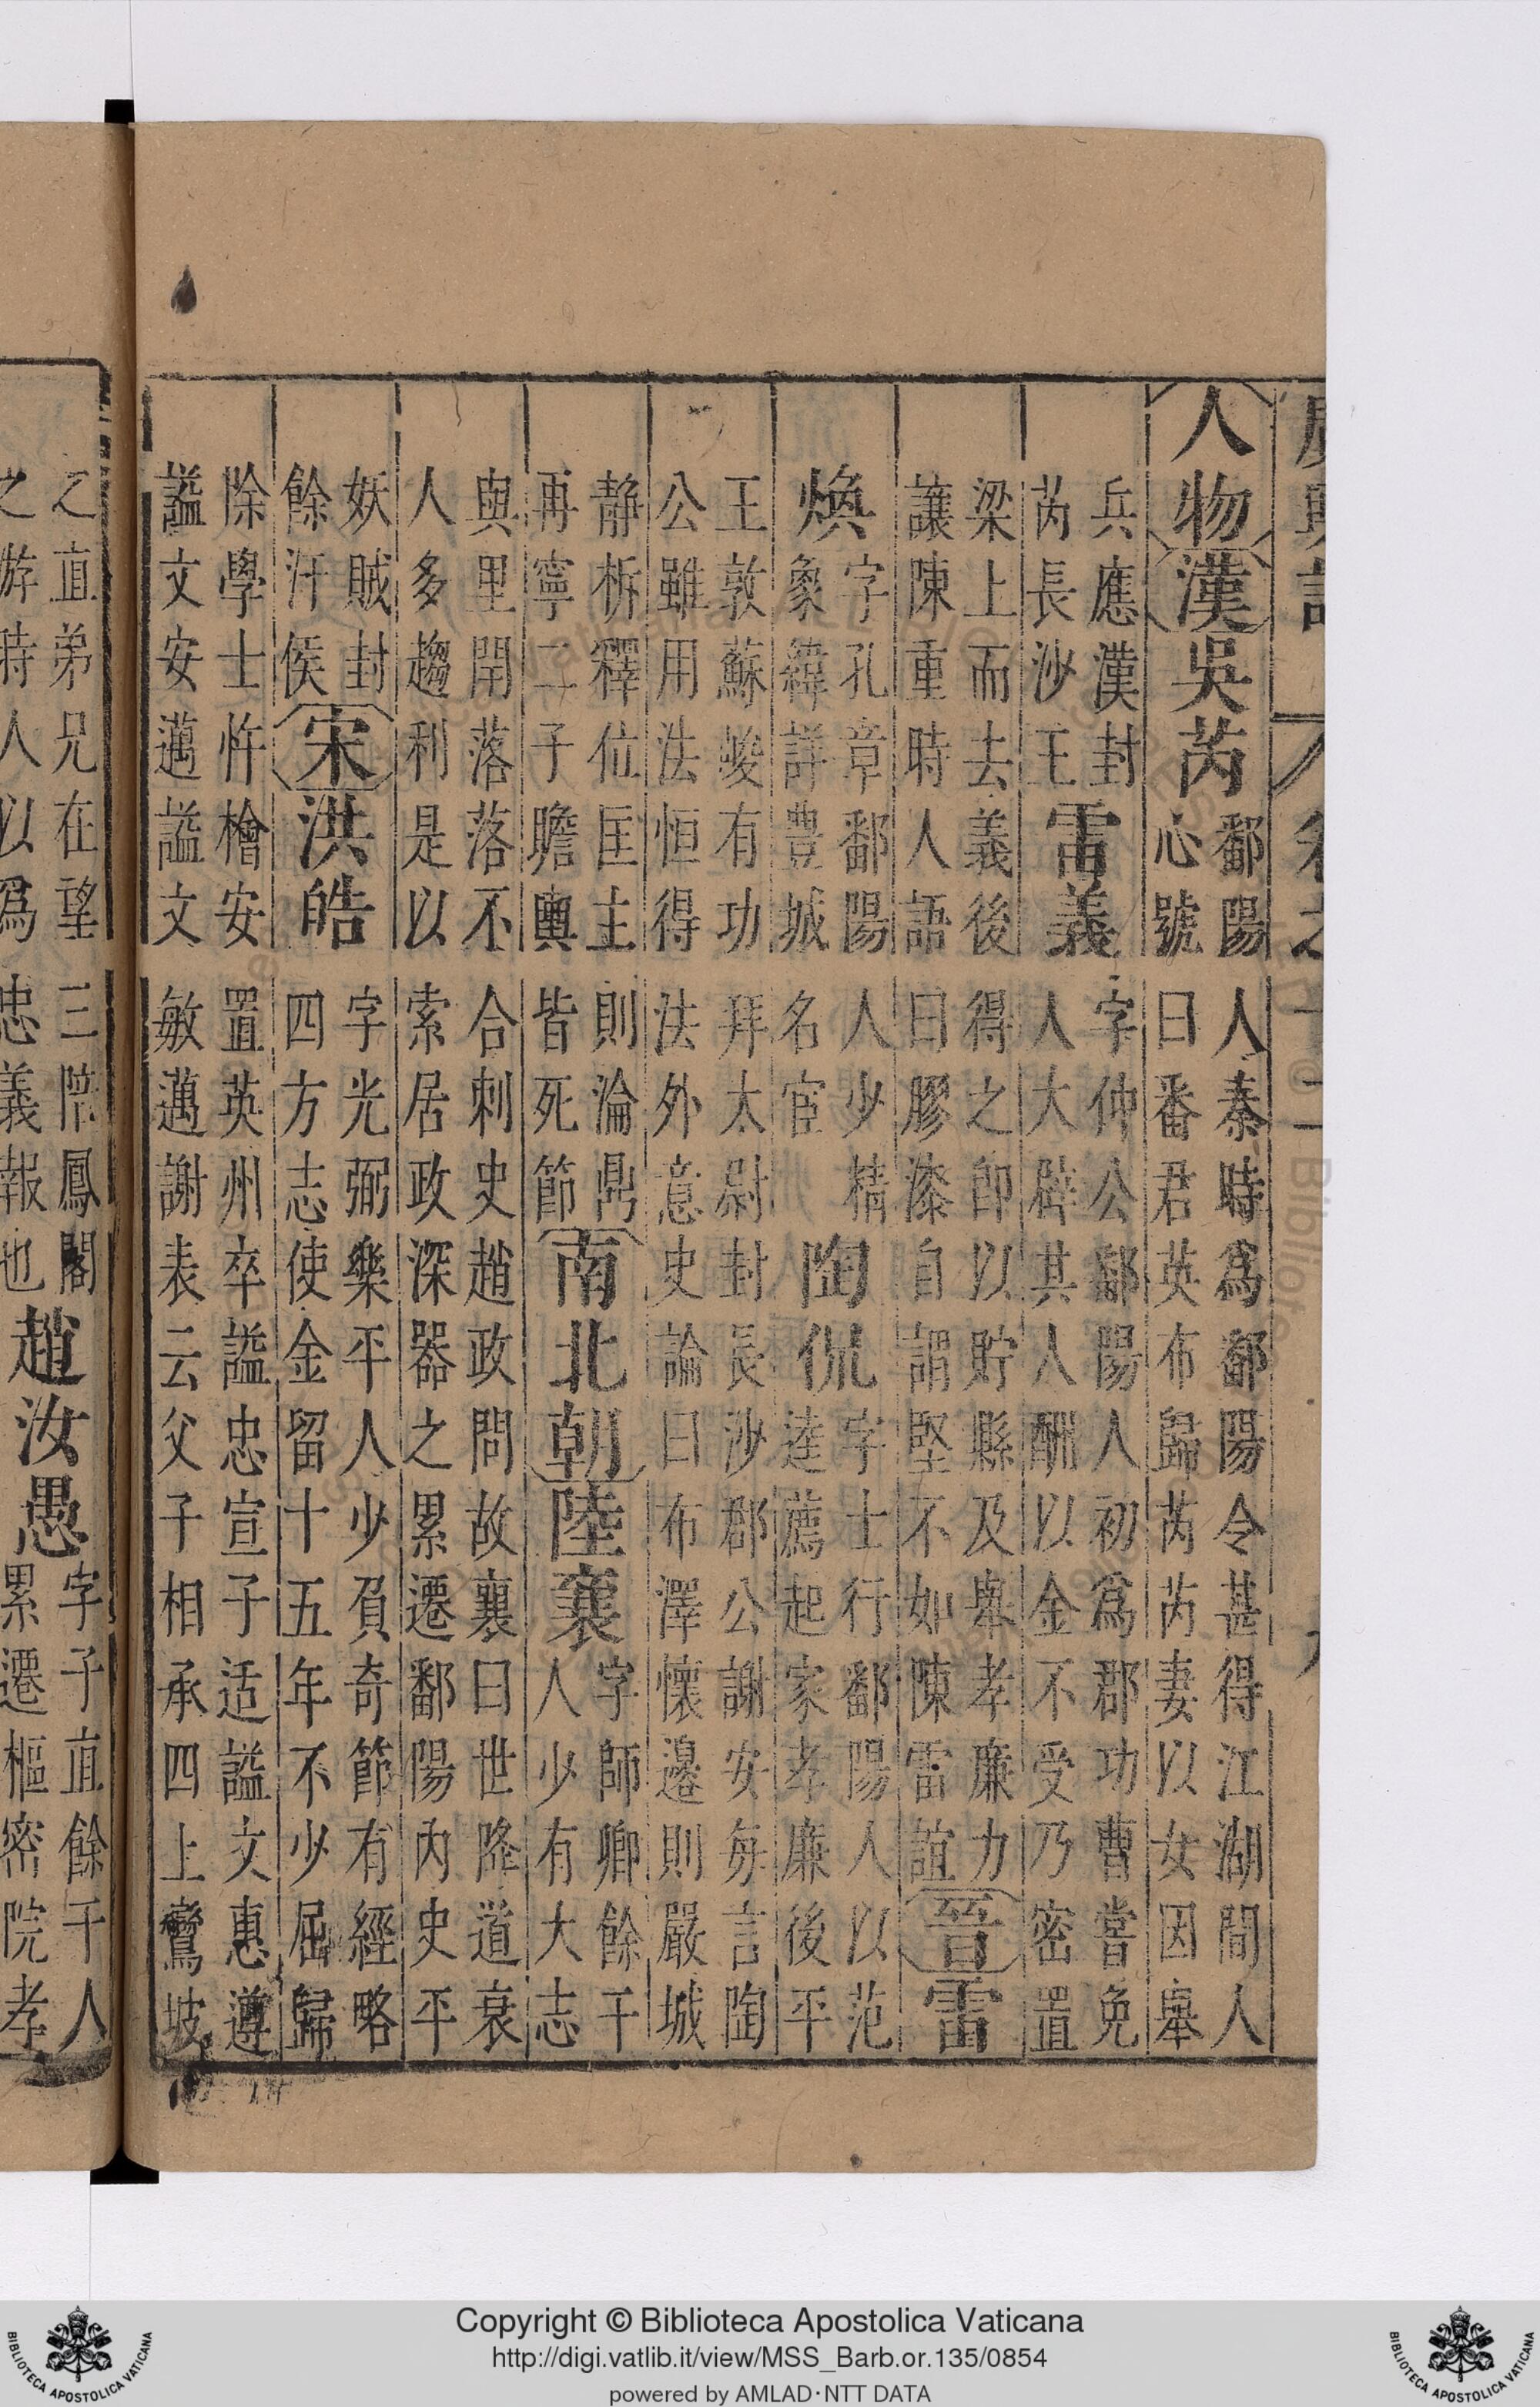 廣輿記 卷之十二
人物 漢 吳芮 鄱陽人秦時爲鄱陽令甚得江湖間人
心號曰番君英布歸芮芮妻以女因舉
兵應漢封
芮長沙王
雷義
字仲公鄱陽人初爲郡功曹嘗免
人大辟其人酬以金不受乃密置
梁上而去義後得之卽以貯縣及舉孝廉力
讓陳重時人語曰膠漆自謂堅不如陳雷誼
晉 雷
煥
字孔章鄱陽人少精
象緯詳豊城名宦
陶侃
字士行鄱陽人以范
逵薦起家孝廉後平
王敦蘇峻有功拜太尉封長沙郡公謝安每言陶
公雖用法恒得法外意史論曰布澤懷邊則嚴城
静柝釋位匡主則淪鼎
再寧二子瞻輿皆死節
南北朝 陸襄
字師卿餘干
人少有大志
與里閈落落不合刺史趙政問故襄曰世降道衰
人多趨利是以索居政深器之累遷鄱陽內史平
妖賊封
餘汗侯
宋 洪皓
字光弼樂平人少負奇節有經略
四方志使金留十五年不少屈歸
除學士忤檜安置英州卒謚忠宣子适謚文惠遵
謚文安邁謚文敏邁謝表云父子相承四上鸞坡
之直弟兄在望三陪鳳閣
之游時人以爲忠義報也
趙汝愚
字子直餘干人
累遷樞密院孝
BIBLIOTECA APOSTOLICA VATICANA
Copyright © Biblioteca Apostolica Vaticana
http://digi.vatlib.it/view/MSS_Barb.or.135/0854
powered by AMLAD·NTT DATA
BIBLIOTECA APOSTOLICA VATICANA